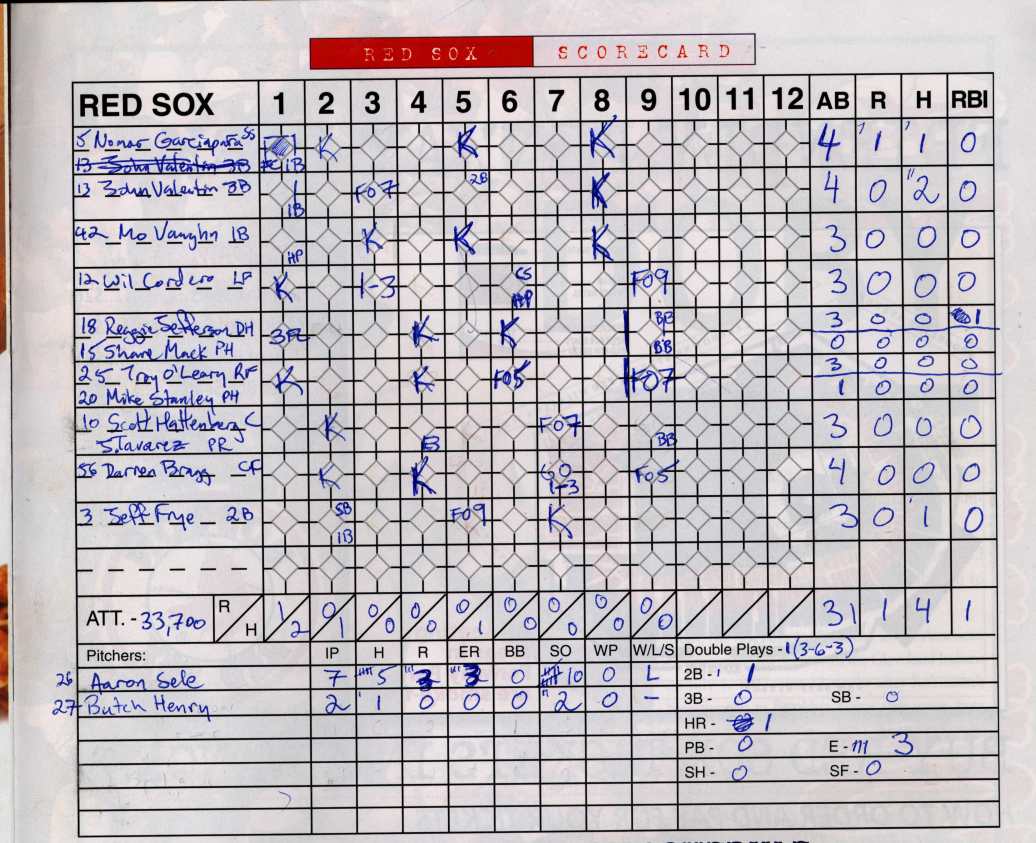 RED SOX SCORECARD
RED SOX 1 2 3 4 5 6 7 8 9 10 11 12 AB R H RBI
5 Nomar Garciapara SS K K K 4 1 1 0
13 John Valentin 3B 1B
13 John Valentin 3B 1B FO7 2B K 4 0 2 0
42 Mo Vaughn 1B HP K K K 3 0 0 0
12 Wil Cordero LF K 1-3 CS HP FO9 3 0 0 0
18 Reggie Jefferson DH K K BB 3 0 0 1
15 Shane Mack PH BB 0 0 0 0
25 Troy O'Leary RF K K FO5 FO7 3 0 0 0
20 Mike Stanley PH 1 0 0 0
10 Scott Hatteberg C K E3 FO7 BB 3 0 0 0
J. Tavarez PR
56 Darren Bragg CF K K GO 1-3 FO5 4 0 0 0
3 Jeff Frye 2B SB 1B FO9 K 3 0 1 0
ATT. - 33,700 R/H 1/2 0/1 0/0 0/0 0/1 0/0 0/0 0/0 0/0 31 1 4 1
Pitchers: IP H R ER BB SO WP W/L/S Double Plays - 1 (3-6-3)
26 Aaron Sele 7 5 3 3 0 10 0 L 2B - 1
27 Butch Henry 2 1 0 0 0 2 0 - 3B - 0 SB - 0
HR - 1
PB - 0 E - III 3
SH - 0 SF - 0